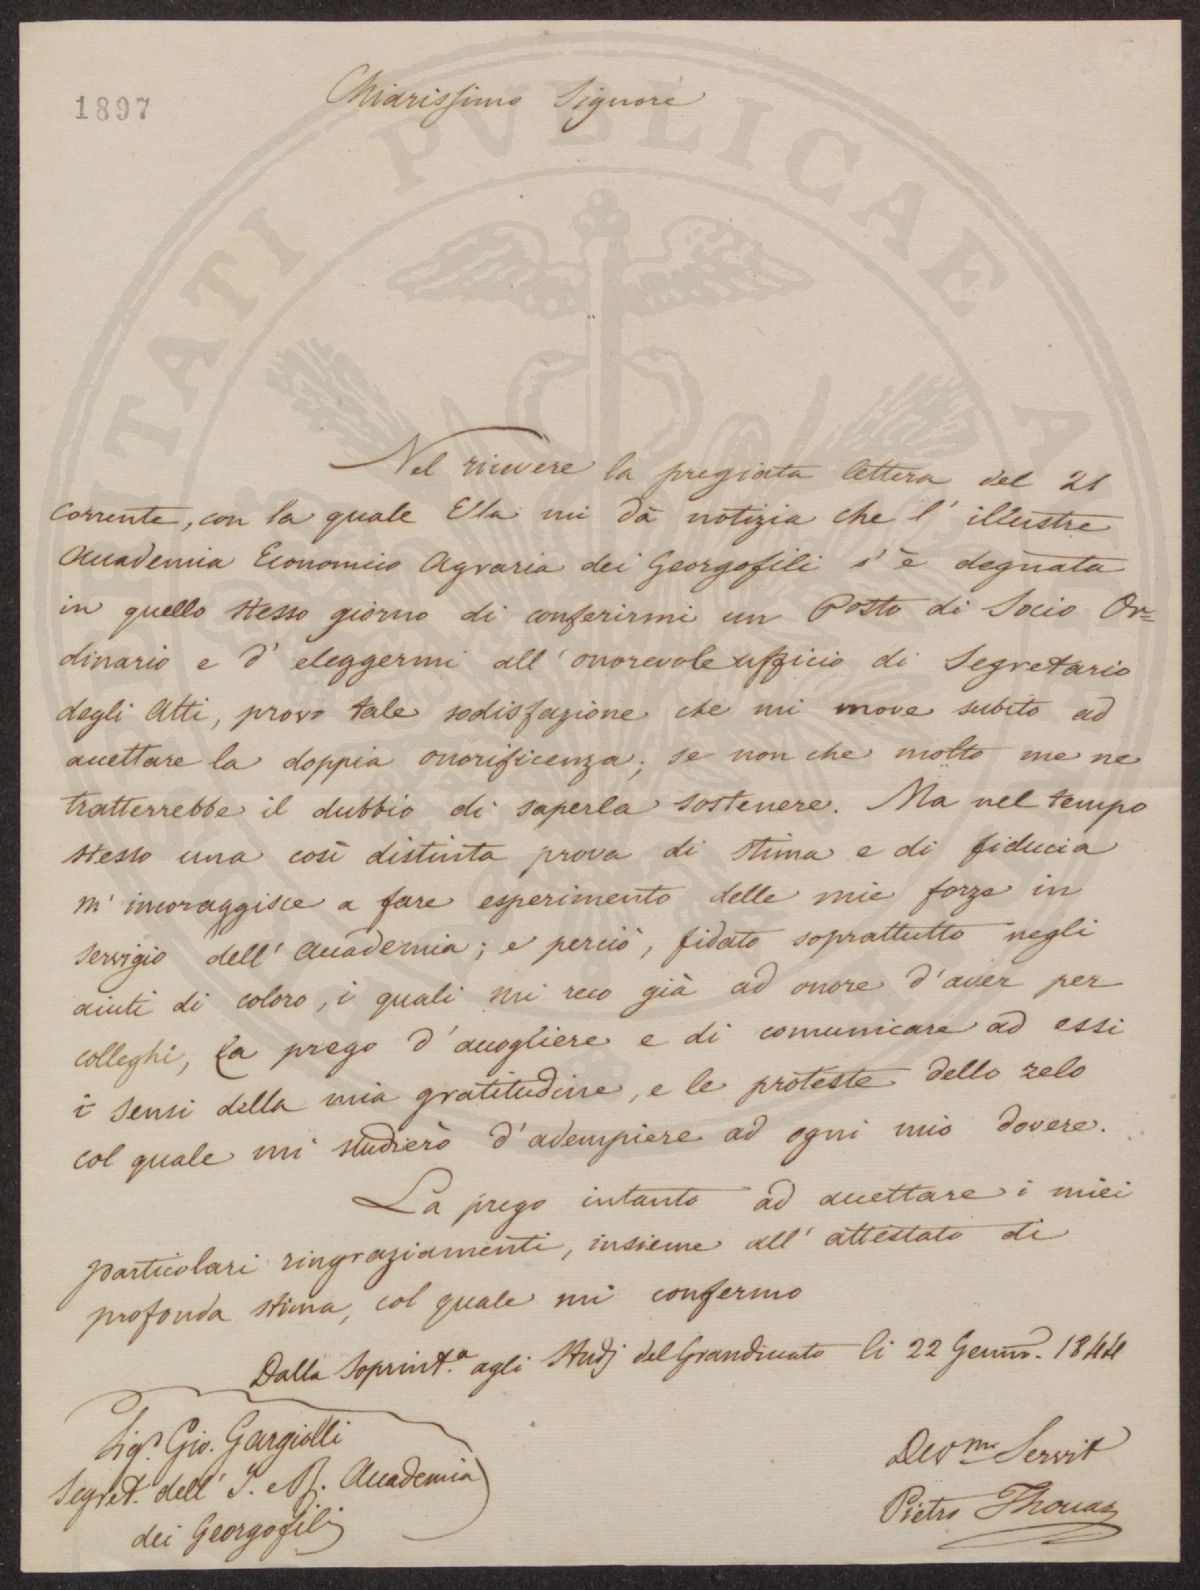 1897
Chiarissimo Signore
Nel ricevere la pregiata lettera del 21
corrente, con la quale Ella mi dà notizia che l'illustre
Accademia Economico Agraria dei Georgofili s'è degnata
in quello stesso giorno di conferirmi un Posto di Socio Or=
dinario e d'eleggermi all'onorevole uffizio di Segretario
degli Atti, provo tale sodisfazione che mi move subito ad
accettare la doppia onorificenza; se non che molto me ne
tratterrebbe il dubbio di saperla sostenere. Ma nel tempo
stesso una così distinta prova di stima e di fiducia
m'incoraggisce a fare esperimento delle mie forze in
servigio dell'Accademia; e perciò, fidato soprattutto negli
aiuti di coloro, i quali mi reco già ad onore d'aver per
colleghi, La prego d'accogliere e di comunicare ad essi
i sensi della mia gratitudine, e le proteste dello zelo
col quale mi studierò d'adempiere ad ogni mio dovere.
La prego intanto ad accettare i miei
particolari ringraziamenti, insieme all'attestato di
profonda stima, col quale mi confermo
Dalla Soprint.a agli Studj del Granducato li 22 Genno. 1844
Sigr. Gio. Gargiolli
Segret. dell'I. e R. Accademia
dei Georgofili
Devmo Servit
Pietro Thouar
UTILITATI PVBLICAE